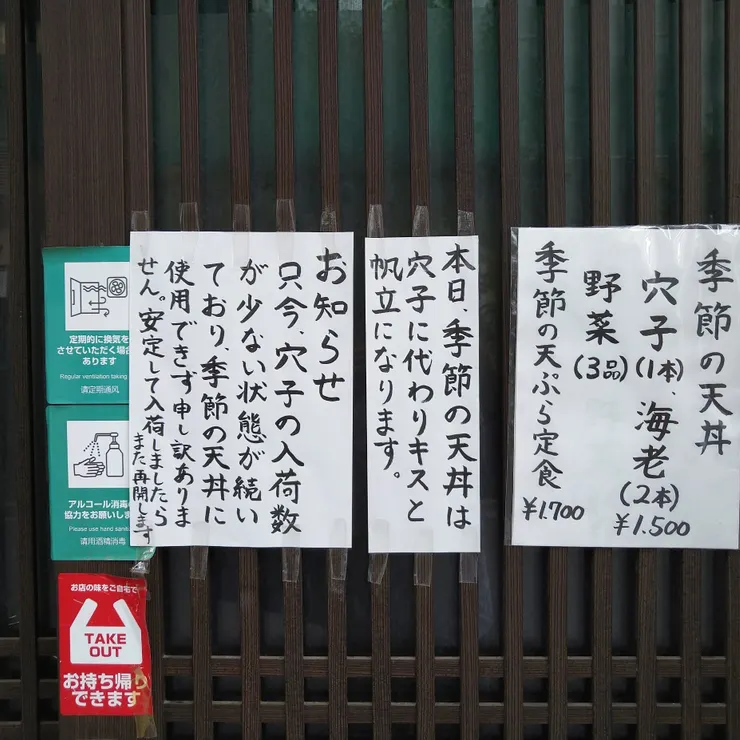 季節の天丼
穴子(1本)、海老(2本)
¥1.500
野菜(3品)
季節の天ぷら定食
¥1700
本日、季節の天丼は
穴子に代わりキスと
帆立になります。
お知らせ
只今、穴子の入荷数
が少ない状態が続い
ており、季節の天丼に
使用できず申し訳ありま
せん。安定して入荷しましたら
また再開します
定期的に換気を
させていただく場合
あります
Regular ventilation taking
请定期通风
アルコール消毒
協力をお願いしま
Please use hand sanit
请用酒精消毒
お店の味をご自宅で
TAKE
OUT
お持ち帰り
できます